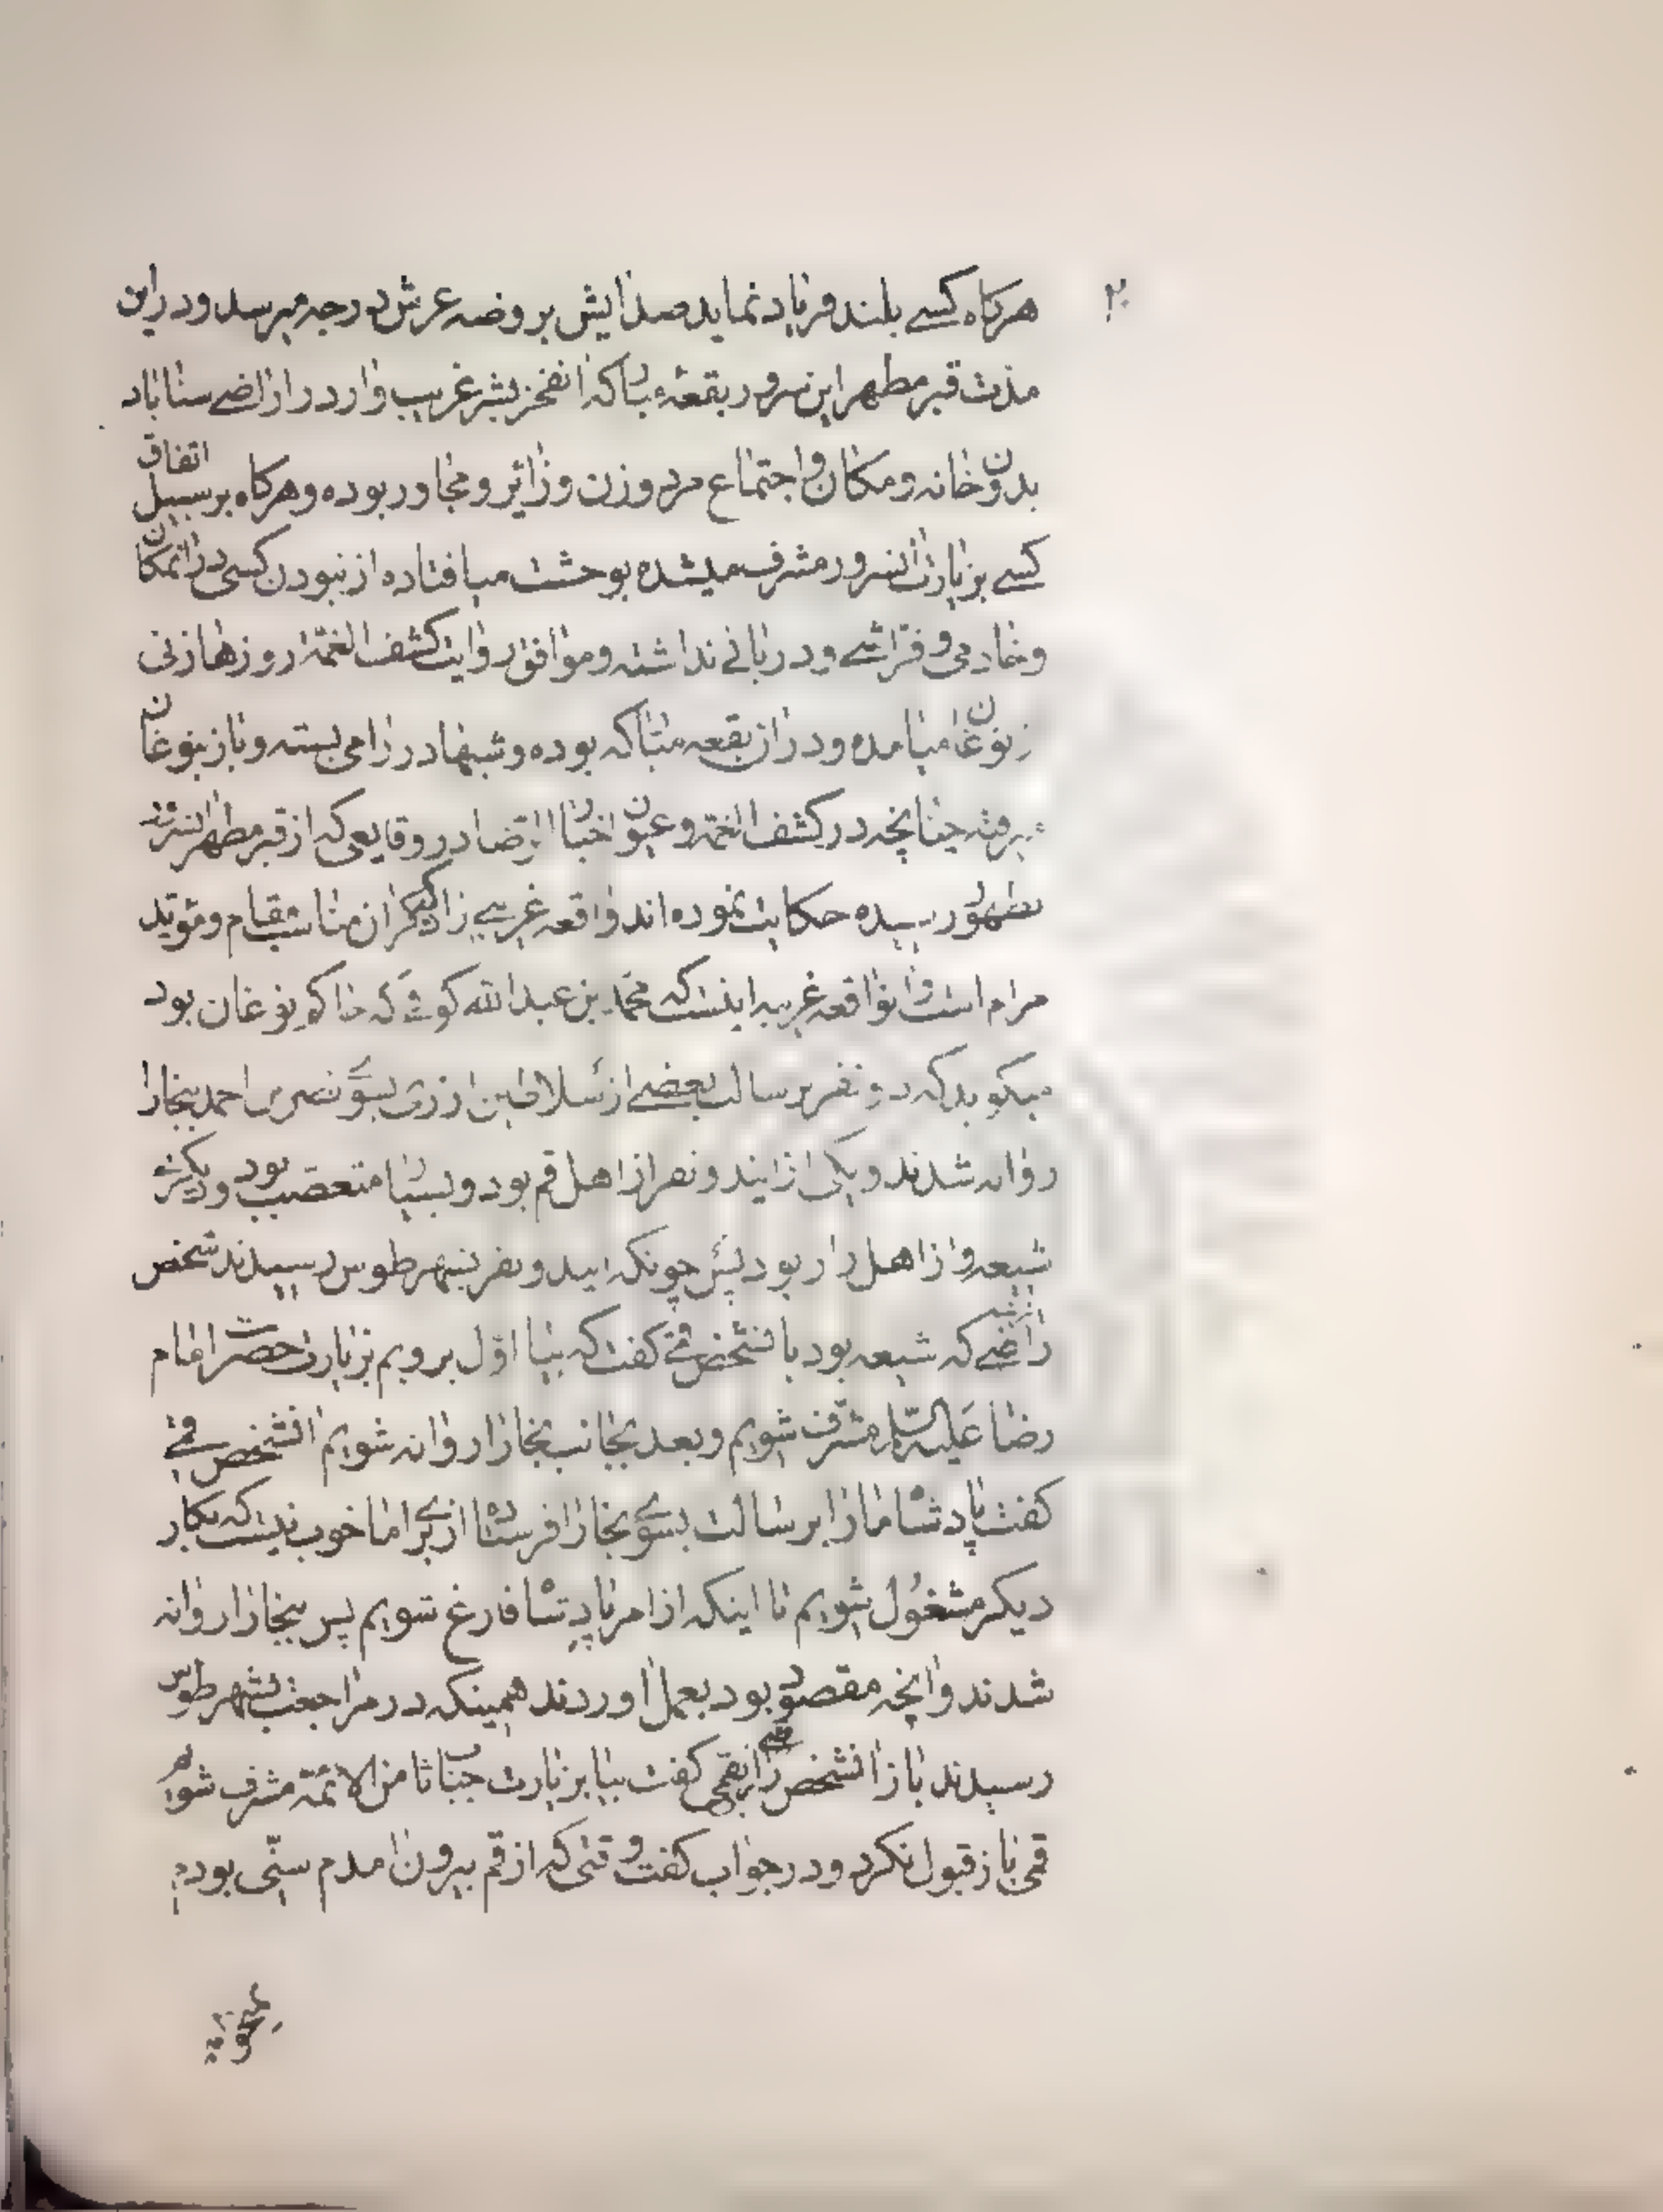 ۲۰
هرکاه کسے بلند فریاد نماید صدایش بروضه عرش درجه میرسد و در این
مدت قبر مطهر این سرور بقعهٔ مباركه انفخر بشر غریب وار در اراضے سناباد
بدون خانه و مکان و اجتماع مرد و زن و زائر و مجاور بوده و هرکاه بر سبیل اتفاق
کسے بزیارت انسرور مشرف میشده بوحشت میافتاده از نبودن کسی در انمکان
و خادمی و فراشے و دربانے نداشته و موافق روایت کشف الغمّه روزها زنی
زنوغان میامده و در ان بقعه مبارکه بوده و شبها در را می بسته و باز بنوغان
میرفته چنانچه در کشف الغمه و عیون اخبار الرضا در وقایعی که از قبر مطهر انسرور
بظهور رسیده حکایت نموده اند واقعه غریبے را که ذکر ان مناسب مقام و مؤید
مرام است و انواقعه غریبه اینست که محمد بن عبدالله کوفے که حاکم نوغان بود
میکوید که دو نفر برسالت بعضے از سلاطین از ری بسوی نصر بن احمد ببخارا
روانه شدند و یکی از ایندو نفر از اهل قم بود و بسیار متعصب بود و دیکرش
شیعه و از اهل راز بود پس چونکه ایندو نفر بشهر طوس رسیدند شخص
رازے که شیعه بود با انشخص قمے کفت که بیا اول برویم بزیارت حضرت امام
رضا عَلیه السّلام مشرف شویم و بعد بجانب بخارا روانه شویم انشخص قمے
کفت پادشاه ما را برسالت بسوے بخارا فرستاده از براے ما خوب نیست که بکار
دیکر مشغول شویم تا اینکه از امر پادشاه فارغ شویم پس ببخارا روانه
شدند و انچه مقصود بود بعمل اوردند همینکه در مراجعت بشهر طوس
رسیدند باز انشخص رازے بقمی کفت بیا بزیارت جناب ثامن الائمّه مشرف شویم
قمی باز قبول نکرد و در جواب کفت وقتی که از قم بیرون امدم سنّی بودم